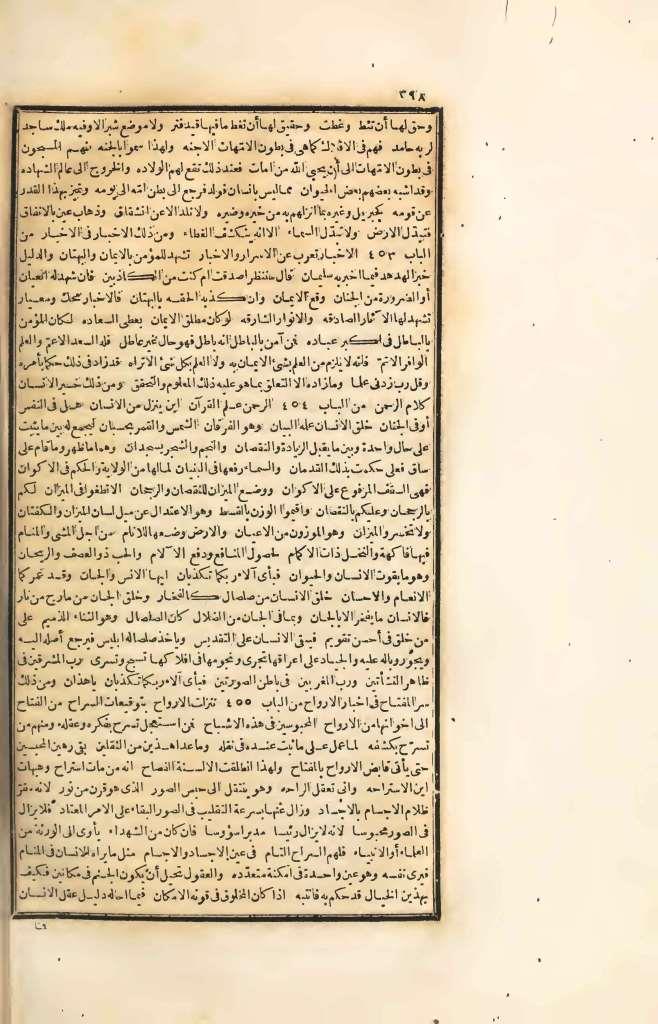 ٣٩٨
وحق لها أن تئط وغطت وحقيق لها أن تغط ما فيها قيد فتر ولا موضع شبر الا وفيه ملك ساجد
لربه حامد فهم فى الافلاك كما هى فى بطون الامهات الاجنه ولهذا سموا بالجنه فهم المسبحون
فى بطون الامهات الى أن يحيى الله من أمات فعند ذلك تقع لهم الولاده والخروج الى عالم الشهاده
وقد اشبه بعضهم بعض الحيوان مما ليس بانسان فولد فرجع الى بطن امه الى يومه وتميز بهذا القدر
عن قومه كجبريل وغيره بما انزلهم به من خبره وضيره ولا تلد الا عن انشقاق وذهاب عين بالاتفاق
فتبدل الارض ولا تبدل السماء الا انه ينكشف الغطاء ومن ذلك الاخبار فى الاخبار من
الباب ٤٥٣ الاخبار تعرب عن الاسرار والاخبار تشهد للمؤمن بالايمان والبهتان والدليل
خبر الهدهد فيما اخبر به سليمان قال سننظر اصدقت ام كنت من الكاذبين فان شهد له العيان
أو الضرورة من الجنان وقع الايمان وان كذبه الحقه بالبهتان فالاخبار محك ومعيار
تشهد لها الآثار الصادقه والانوار الشارقه لو كان مطلق الايمان يعطى السعاده لكان المؤمن
بالباطل فى اكبر عباده فمن آمن بالباطل انه باطل فهو حال غير عاطل فله السعد الاعم والعلم
الوافر الاتم فانه لا يلزم من العلم بشئ الايمان به ولا العلم بكل شئ الا تراه قد زاد فى ذلك حكما بأمره
وقل رب زدنى علما وما زاده الا التعلق بما هو عليه ذلك المعلوم والتحقق ومن ذلك خسر الانسان
كلام الرحمن من الباب ٤٥٤ الرحمن علم القرآن اين ينزل من الانسان هل فى النفس
أو فى الجنان خلق الانسان علمه البيان وهو الفرقان الشمس والقمر بحسبان ليجمع له بين ما يثبت
على حال واحدة وبين ما يقبل الزيادة والنقصان والنجم والشجر يسجدان وهما ما ظهر وما قام على
ساق فعلى حكمت بذلك القدمان والسماء رفعها فى البنيان لما لها من الولاية والحكم فى الاكوان
فهى السقف المرفوع على الاكوان ووضع الميزان للنقصان والرجحان الا تطغوا فى الميزان لكم
بالرجحان وعليكم بالنقصان واقيموا الوزن بالقسط وهو الاعتدال عن ميل لسان الميزان والكفتان
ولا تخسروا الميزان وهو الموزون من الاعيان والارض وضعها للانام من اجل المشى والمنام
فيها فاكهة والنخل ذات الاكمام لحصول المنافع ودفع الآلام والحب ذو العصف والريحان
وهو ما يقوت الانسان والحيوان فبأى آلاء ربكما تكذبان ايها الانس والجان وقد غمركما
الانعام والاحسان خلق الانسان من صلصال كالفخار وخلق الجان من مارج من نار
فالانسان ما يفخر الا بالجان وبما فى الجان من الضلال كان الصلصال وهو الثناء الذميم على
من خلق فى أحسن تقويم فيبقى الانسان على التقديس ويأخذ صلصاله ابليس فيرجع أصله اليه
ويجور وباله عليه والجياد على اعراقها تجرى ونجومها فى افلاكها تسبح وتسرى رب المشرقين فى
ظاهر النشأتين ورب المغربين فى باطن الصورتين فبأى آلاء ربكما تكذبان يا هذان ومن ذلك
سر المفتاح فى اخبار الارواح من الباب ٤٥٥ تنزلت الارواح بتوقيعات السراح من الفتاح
الى اخوانها من الارواح المحبوسين فى هذه الاشباح فمن استعجل تسرح بفكره وعقله ومنهم من
تسرح بكشفه لما عمل على ما ثبت عنده فى نقله وما عدا هذين من الثقلين بقى رهين المحبسين
حتى يأتى قابض الارواح بالمفتاح ولهذا انطلقت الالسنة الفصاح انه من مات استراح وهيهات
اين الاستراحه وانى تعقل الراحه وهو ينتقل الى حبس الصور الذى هو قرن من نور لانه نفر
ظلام الاجسام بالاجساد وزال عنها بسرعة التقليب فى الصور البقاء على الامر المعتاد فلا يزال
فى الصور محبوسا لانه لا يزال رئيسا مدبرا مرؤوسا فان كان من الشهداء يأوى الى الورثة من
العلماء أو الانبياء فلهم السراح التام فى عين الاجساد والاجسام مثل ما يراه الانسان فى المنام
فيرى نفسه وهو عين واحدة فى امكنة متعدده والعقول تحيل أن يكون الجسم فى مكانين فكيف
بهذين الخيال قد حكم به فانتبه اذا كان المخلوق فى قوته الامكان فيما احاله دليل عقل الانسان